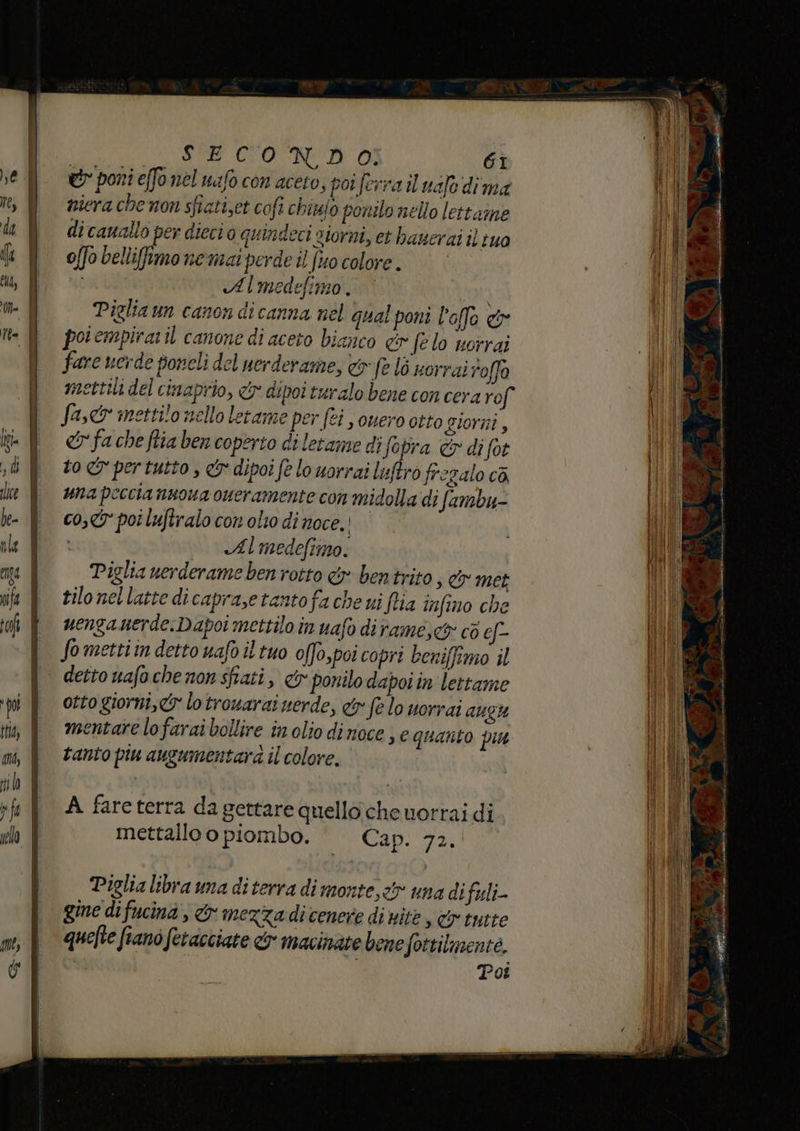 SECONDO. 61
& poni esso nel uaso con aceto, poi serra il uaso di ma
niera che non sfiati,et cosi chiuso ponilo nello lettame
di cauallo per dieci o quindeci giorni, et hauerai il tuo
osso bellissimo ne mai perde il suo colore.
Al medesimo.
Piglia un canon di canna nel qual poni l'osso &
poi empirai il canone di aceto bianco & se lo uorrai
fare uerde poneli del uerderame, & se lò uorrai rosso
mettili del cinaprio, & dipoi turalo bene con cera ros
sa,& mettilo nello letame per sei, ouero otto giorni,
& fa che stia ben coperto di letame di sopra & di sot
to & per tutto, & dipoi se lo uorrai lustro fregalo cō
una peccia nuoua oueramente con midolla di sambu-
co,& poi lustralo con olio di noce.
Al medesimo.
Piglia uerderame ben rotto & ben trito, & met
tilo nel latte di capra,e tanto fa che ui stia infino che
uenga uerde.Dapoi mettilo in uaso di rame,& cō es-
so metti in detto uaso il tuo osso,poi copri benissimo il
detto uaso che non sfiati, & ponilo dapoi in lettame
otto giorni,& lo trouarai uerde, & se lo uorrai augu
mentare lo farai bollire in olio di noce, e quanto piu
tanto piu augumentarà il colore.
A fare terra da gettare quello che uorrai di
mettallo o piombo. Cap. 72.
Piglia libra una di terra di monte,& una di fuli-
gine di fucina, & mezza di cenere di uite, & tutte
queste siano setacciate & macinate bene sottilmente.
Poi